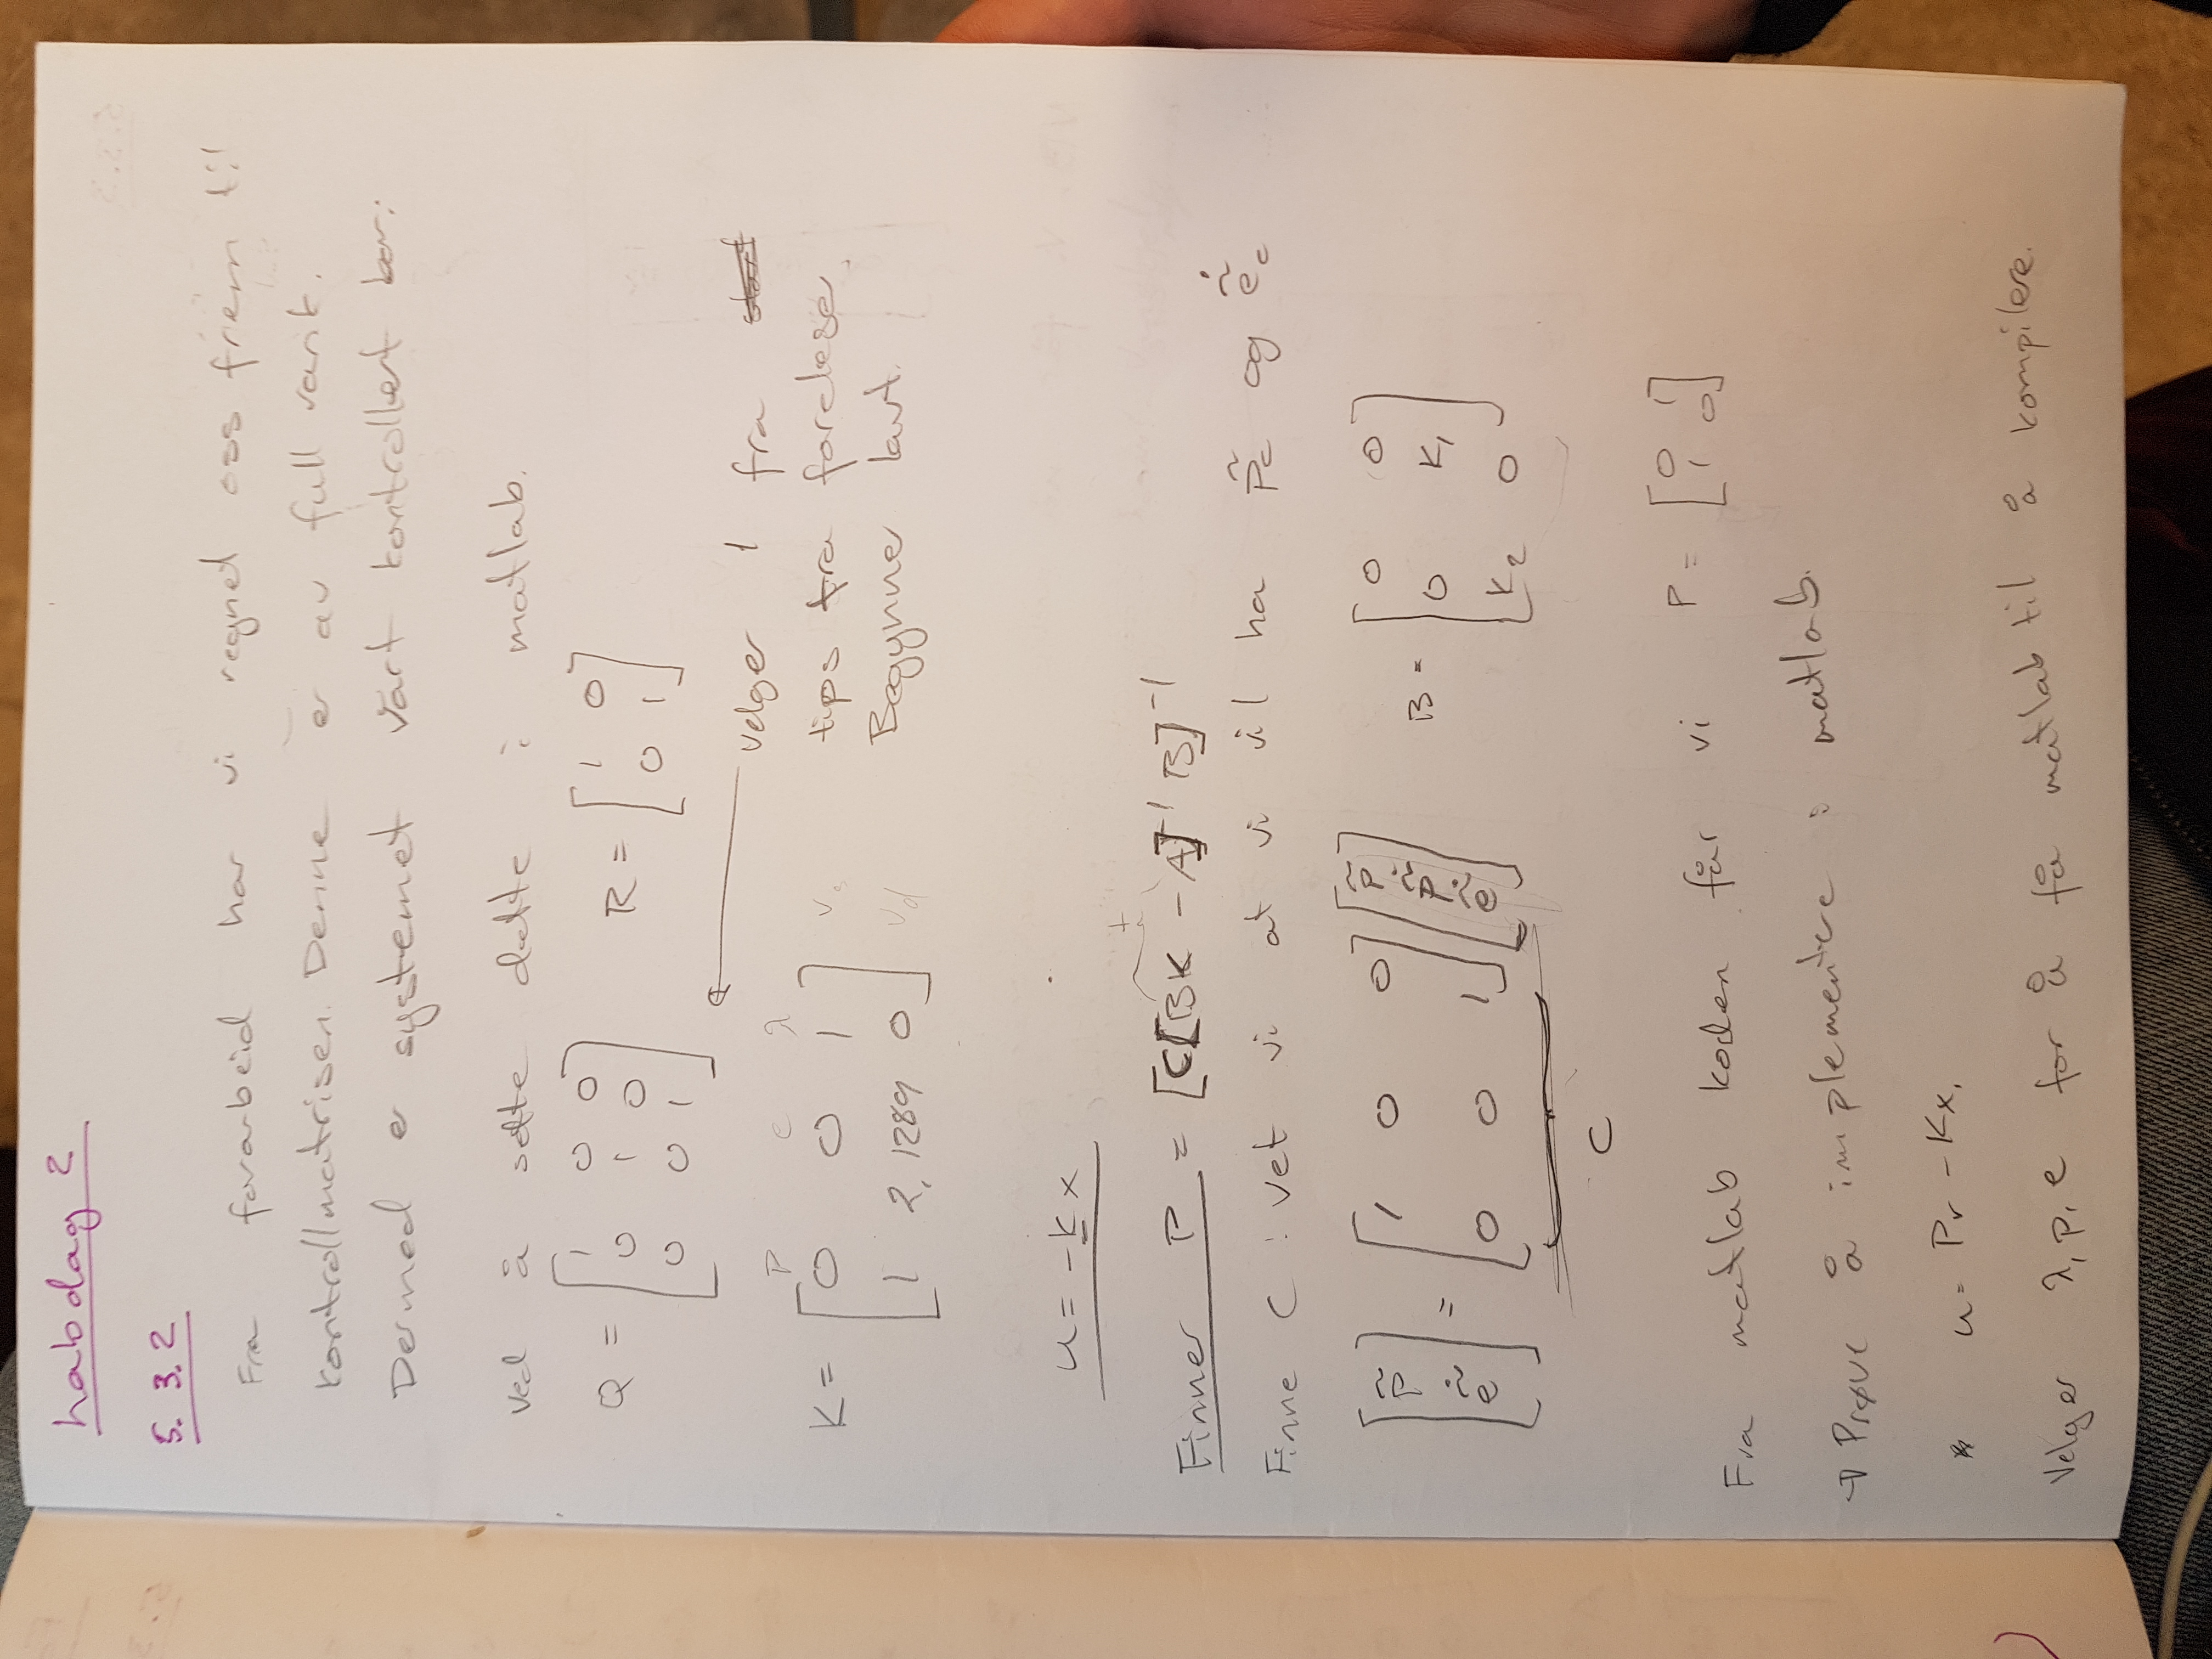 Labdag 2
5.3.2
Fra forarbeid har vi regnet oss frem til
kontrollmatrisen. Denne er av full rank.
Dermed er systemet vårt kontrollert bar.
Ved å sette dette i matlab.
Q = [1 0 0; 0 1 0; 0 0 1] R = [1 0; 0 1]
velger 1 fra start
p e λ
K = [0 0 1; 1 2,1289 0] Vs Vd
tips fra foreleser
Begynne lavt.
u = -Kx
+
Finner P = [C[BK - A]⁻¹ B]⁻¹
Finne C : vet vi at vi vil ha p̃c og ẽ̇c
[p̃; ẽ̇] = [1 0 0; 0 0 1] [p̃; p̃̇; ẽ̇] B = [0 0; 0 K₁; K₂ 0]
C
Fra matlab koden får vi P = [0 1; 1 0]
→ Prøve å implementere i matlab.
* u = Pr - Kx,
Velger λ, p, e for å få matlab til å kompilere.